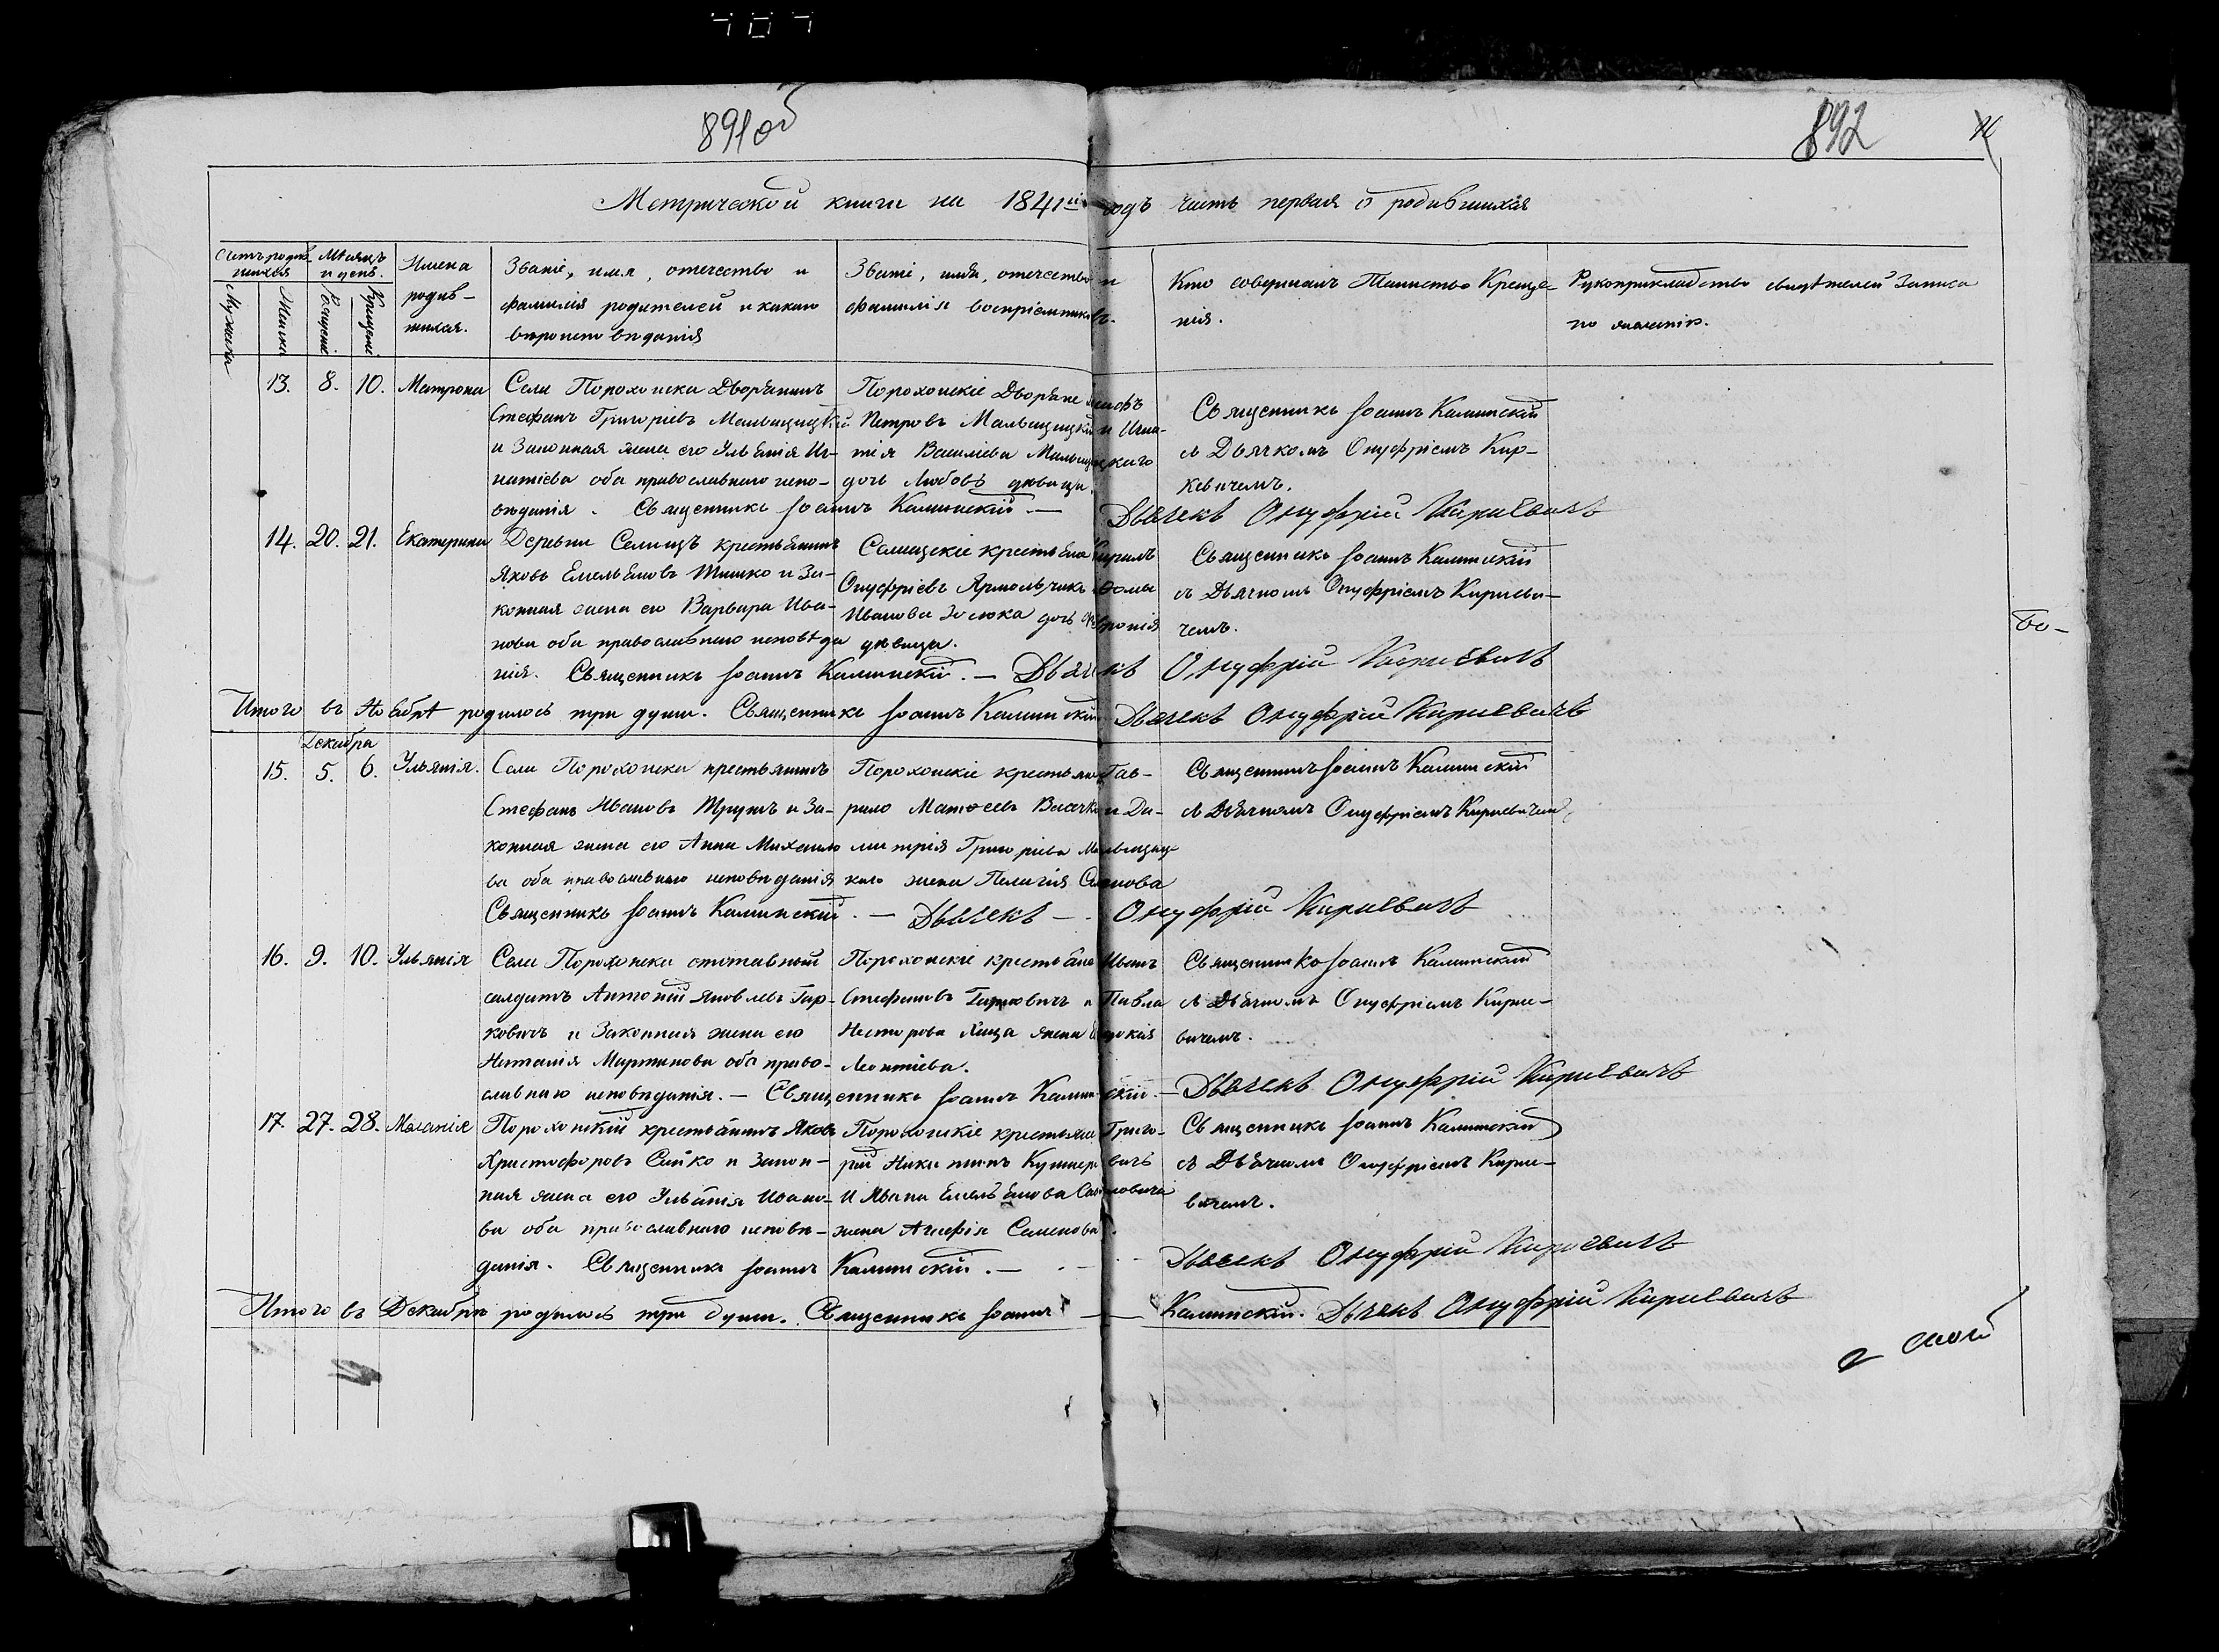 891об
892
Метрической книги на 1841й годъ часть первая о родившихся
Счетъ родив-
шихся
Мѣсяцъ
и день.
Имена
родив-
шихся.
Званіе, имя, отечество и
фамилія родителей и какого
вѣроисповѣданія
Званіе, имя, отечество и
фамилія воспріемниковъ.
Кто совершалъ Таинство Креще-
нія.
Рукоприкладство свидѣтелей записи
по желанію.
Мужска
Женска
Рожденія
Крещенія
13. 8. 10. Матрона
Села Порохонска Дворянинъ
Стефанъ Григоріевъ Мальщицкій
и Законная жена его Ульянія Иг-
натіева оба православнаго испо-
вѣданія. Священникъ Іоаннъ Калинскій. —
Порохонскіе Дворяне Іосифъ
Петровъ Мальщицкій и Игна-
тія Василіева Мальщицкаго
дочь Любовь дѣвица.
Священникъ Іоаннъ Калинскій
съ Дьячкомъ Онуфріемъ Кир-
кевичемъ.
Дьячекъ Онуфрій Кириевичъ
14. 20. 21. Екатерина
Деревни Селищъ крестьянинъ
Яковъ Емельяновъ Тишко и За-
конная жена его Варвара Ива-
нова оба православнаго исповѣда
нія. Священникъ Іоаннъ Калинскій. —
Селищскіе крестьяне Кирилъ
Онуфріевъ Ярмольчикъ Ѳома
Иванова дочь Февронія
дѣвица.
Священникъ Іоаннъ Калинскій
съ Дьячкомъ Онуфріемъ Кириеви-
чемъ.
Дьячекъ Онуфрій Кириевичъ
Итого въ Ноябрѣ родилось три души. Священникъ Іоаннъ Калинскій Дьячекъ Онуфрій Кириевичъ
Декабря
15. 5. 6. Ульянія.
Села Порохонска крестьянинъ
Стефанъ Ивановъ Трушъ и За-
конная жена его Анна Михайло
ва оба православнаго исповѣданія
Священникъ Іоаннъ Калинскій. —
Порохонскіе крестьяне Гав-
рило Матѳеевъ и Ди-
митрія Григоріева Мальщиц-
каго жена Пелагія Семенова
Священникъ Іоаннъ Калинскій
съ Дьячкомъ Онуфріемъ Кириевичемъ
Дьячекъ — Онуфрій Кириевичъ
16. 9. 10. Ульянія
Села Порохонска отставный
солдатъ Антоній Яковлевъ Гар-
ковичъ и Законная жена его
Наталія Мартинова оба право-
славнаго исповѣданія. — Священникъ Іоаннъ Калинскій. —
Порохонскіе крестьяне Иванъ
Стефановъ и Павла
Нестерова Хица жена Евдокія
Леонтіева.
Священникъ Іоаннъ Калинскій
съ Дьячкомъ Онуфріемъ Кирие-
вичемъ.
Дьячекъ Онуфрій Кириевичъ
17. 27. 28. Меланія
Порохонскій крестьянинъ Яковъ
Христофоровъ Сайко и Закон-
ная жена его Ульянія Ивано-
ва оба православнаго исповѣ-
данія. Священникъ Іоаннъ Калинскій. —
Порохонскіе крестьяне Григо-
рій Никитинъ Кушнеревичъ
И Ивана Емельянова
жена Агафія Семенова.
Священникъ Іоаннъ Калинскій
съ Дьячкомъ Онуфріемъ Кирие-
вичемъ.
Дьячекъ Онуфрій Кириевичъ
Итого въ Декабрѣ родилось три души. Священникъ Іоаннъ — Калинскій. Дьячекъ Онуфрій Кириевичъ